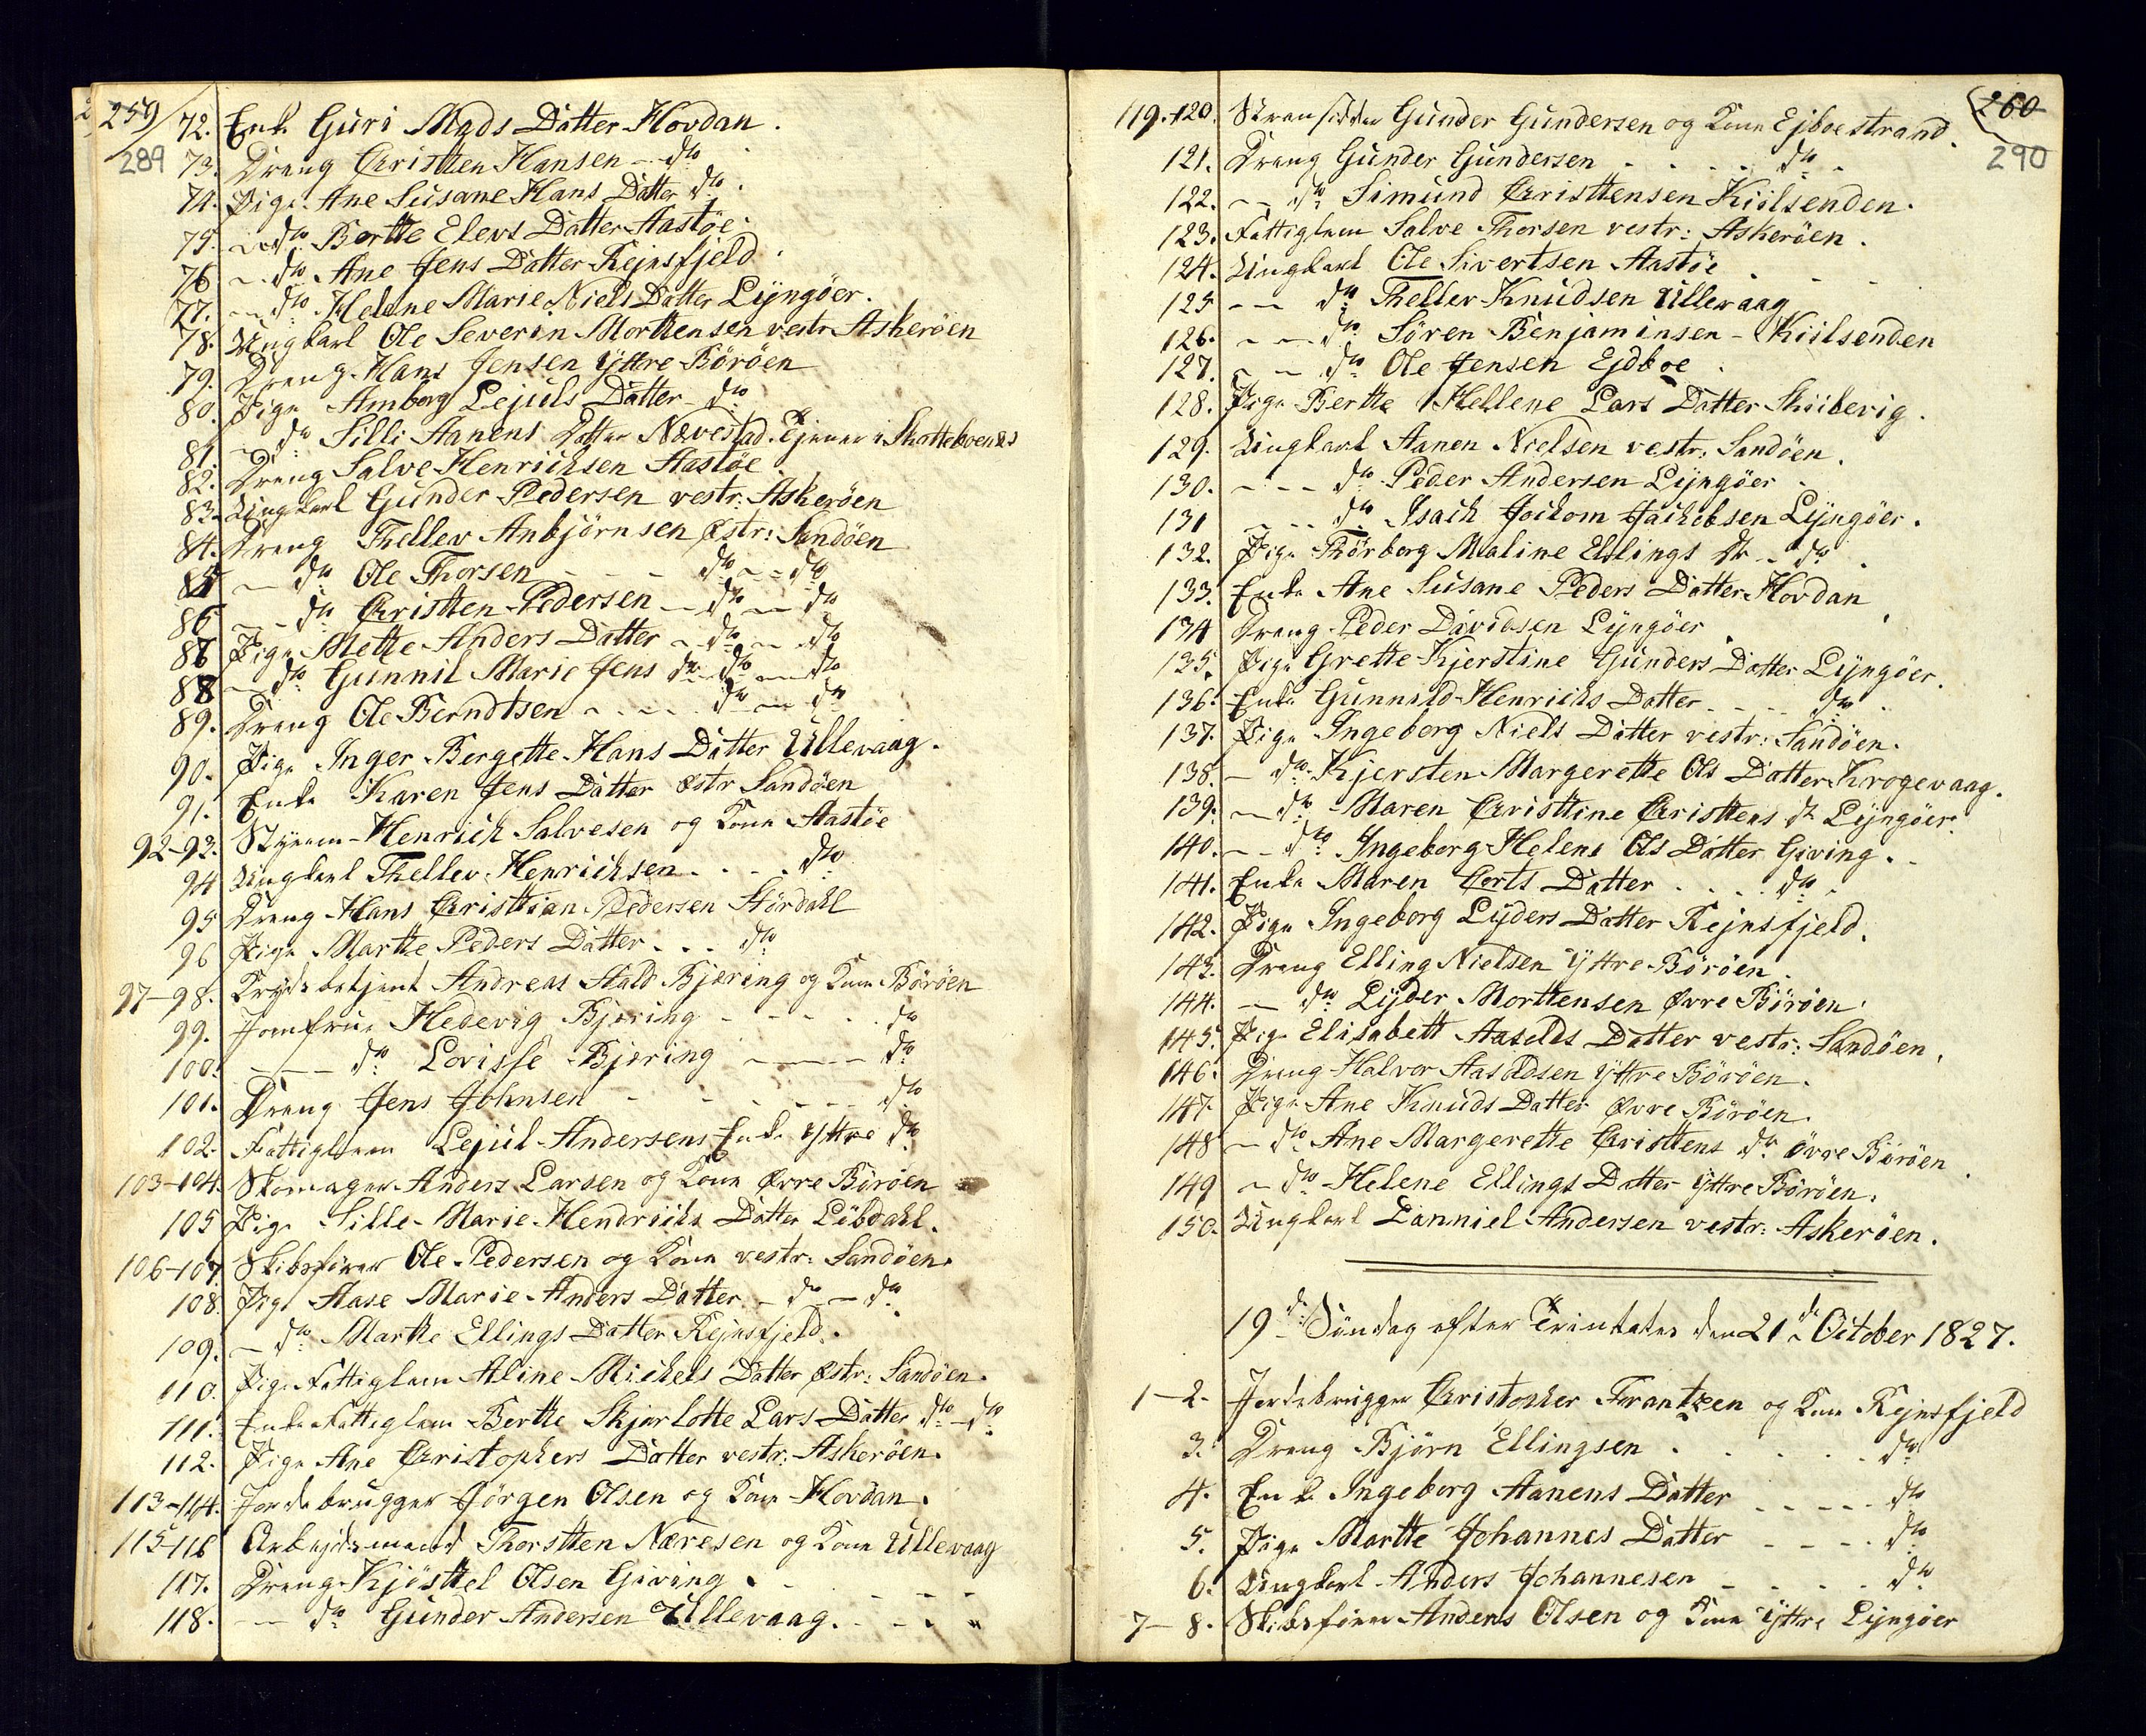 259
289
72. Enke Guri Mads Datter Hovdan.
73. Dreng Christten Hansen - do
74. Pige Ane Susane Hans Datter do.
75. - do Bertte Elevs Datter Aastøe.
76 - do Ane Jens Datter Rejnsfjeld.
77. - do Helene Marie Niels Datter Lÿngöer.
78. Ungkarl Ole Severin Morttensen vestr Askeröen
79. Dreng Hans Jensen Ÿttre Böröen
80. Pige Amborg Lejuls Datter - do
81. - do Silli Aanens Datter Navestad. Tjener i
82. Dreng Salve Henrichsen Aastøe.
83. Ungkarl Gunder Pedersen vestr: Askeröen
84. Dreng Thellev Anbjörnsen østr: Sandöen
85 - do Ole Thorsen - - - do - - do
86 - - do Christten Pedersen - do - do
87 Pige Mette Anders Datter - do - do
88 - do Gunnil Marie Jens dr - do - do
89. Dreng Ole Berndtsen - - - - do - do
90. Pige Inger Bergette Hans Datter Ullevaag.
91. Enke Karen Jens Datter østr Sandöen
92-93. Styrm. Henrich Salvesen og Kone Aastøe
94 Ungkarl Thellev Henrichsen - - - - do
95 Dreng Hans Christtian Pedersen Hördahl
96 Pige Martte Peders Datter - - - do
97-98. Krydsbetjent Andreas Hald Bjering og Kone Böröen
99. Jomfrue Hedevig Bjering - - - - - do
100. - - - do Lovisse Bjering - - - - do
101. Dreng Jens Johnsen - - - - - - do
102. Fattiglem Lejul Andersens Enke Ÿttre do
103-104. Skomager Anders Larsen og Kone Øvre Böröen
105 Pige Sille Marie Hendrichs Datter Löbdahl.
106-107 Skibsförer Ole Pedersen og Kone vestr: Sandöen.
108. Pige Aase Marie Anders Datter - do - do
109. - do Martte Ellings Datter Rejnsfjeld.
110. Pige Fattiglem Aline Michels Datter østr: Sandöen.
111. Enke Fattiglem Bertte Skjarlotte Lars Datter do - do
112. Pige Ane Christophers Datter vestr: Askeröen.
113-114. Jordebrugger Jörgen Olsen og Kone Hovdan.
115-116 Arbejdsmand Thorstten Næresen og Kone Ullevaag
117. Dreng Kjösttel Olsen Gieving. - - - -
118. - - do Gunder Andersen Ullevaag. - - - -
260
290
119.-120. Stransidder Gunder Gundersen og Kone Ejboestrand.
121. Dreng Gunder Gundersen - - - - do.
122. - - do Simund Christtensen Kiilsenden.
123. Fattiglem Salve Thorsen vestr: Askeröen.
124. Ungkarl Ole Sivertsen Aastøe. - -
125 - - do Thellev Knudsen Ullevaag
126. - - do Sören Benjaminsen - Kiilsenden
127. - - do Ole Jensen Ejdboe.
128. Pige Bertte Hellene Lars Datter Skiibevig.
129. Ungkarl Aanen Nielsen vestr: Sandöen.
130. - - - do Peder Andersen Lÿngöer.
131 - - - do Isach Jochom Jachobsen Lÿngöer.
132. Pige Thorborg Maline Ellings Dr - do.
133. Enke Ane Susane Peders Datter Hovdan
134 Dreng Peder Davidsen Lÿngöer.
135. Pige Grette Kjerstine Gunders Datter Lÿngöer.
136. Enke Gunnild Henrichs Datter - - - do
137. Pige Ingeborg Niels Datter vestr: Sandöen.
138. - do Kjersten Margerette Ols Datter Krogevaag.
139. - do Maren Christtine Christtens dr Lÿngöer.
140. - - do Ingeborg Helene Ols Datter Gieving.
141. Enke Maren Corts Datter - - - - do
142. Pige Ingeborg Lÿders Datter Rejnsfjeld.
143. Dreng Elling Nielsen Ÿttre Böröen.
144. - - do Lÿder Morttensen Øvre Böröen.
145. Pige Elisabett Aasolds Datter vestr: Sandöen.
146. Dreng Halvor Aasoldsen Ÿttre Böröen.
147. Pige Ane Knuds Datter Øvre Böröen.
148 - do Ane Margerette Christtens dr øvre Böröen
149 - do Helene Ellings Datter Ÿttre Böröen.
150. Ungkarl Danniel Andersen vestr: Askeröen.
19de Söndag efter Trinitates den 21de October 1827.
1-2. Jordebrugger Christopher Frantzen og Kone Rejnsfjeld
3. Dreng Bjørn Ellingsen - - - - do
4. Enke Ingeborg Aanens Datter - - - - - do
5. Pige Martte Johannes Datter - - - - do
6. Ungkarl Anders Johannesen - - - - do
7-8. Skibsförer Anders Olsen og Kone Ÿttre Lÿngöer